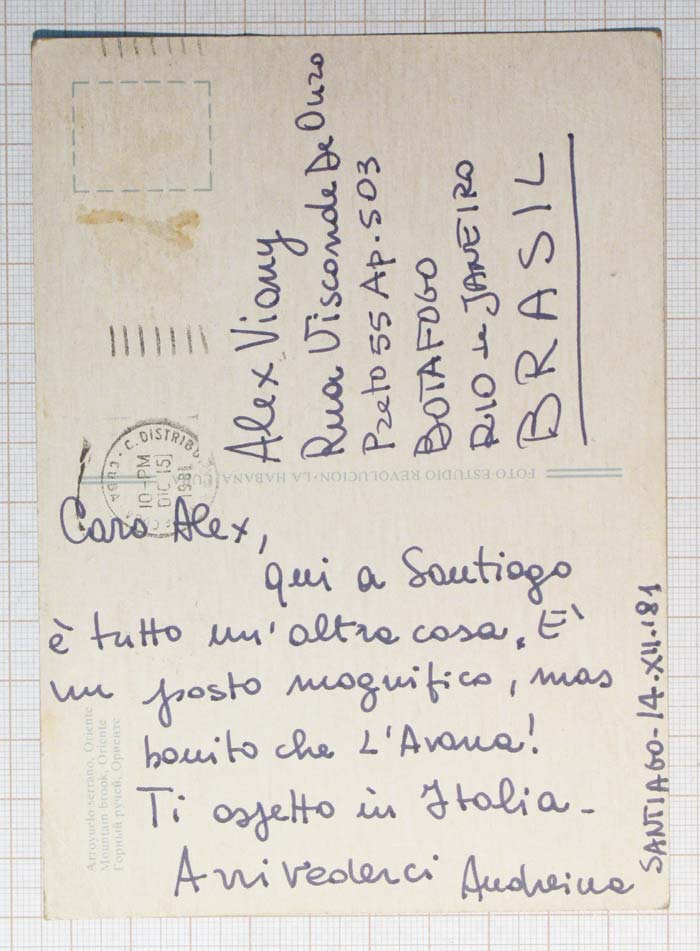 Alex Viany
Rua Visconde De Ouro
Preto 55 Ap. 503
BOTAFOGO
RIO de JANEIRO
BRASIL
C. DISTRIBU
CUBA
10-PM
DIC 15
1981
FOTO ESTUDIO REVOLUCION-LA HABANA, CUBA
Caro Alex,
qui a Santiago
è tutto un'altra cosa. È
un posto magnifico, mas
bonito che L'Avana!
Ti aspetto in Italia -
Arrivederci Andreina
SANTIAGO-14-XII-'81
Arroyuelo serrano, Oriente
Mountain brook, Oriente
Горный ручей, Ориенте